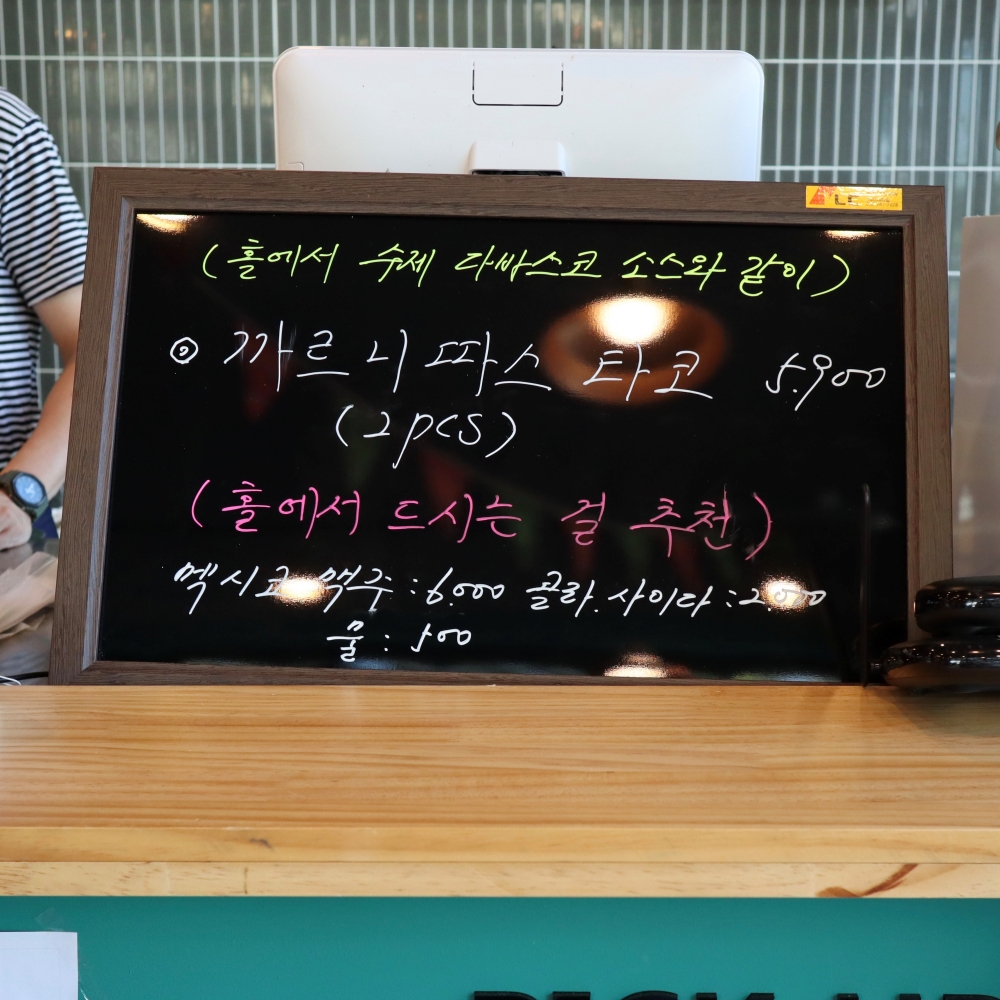 (홀에서 수제 다바스코 소스와 같이)
⊙ 까르니따스 타코 5.900
(2pcs)
(홀에서 드시는 걸 추천)
멕시코 맥주 : 6.000 콜라. 사이다 : 2.000
물 : 500